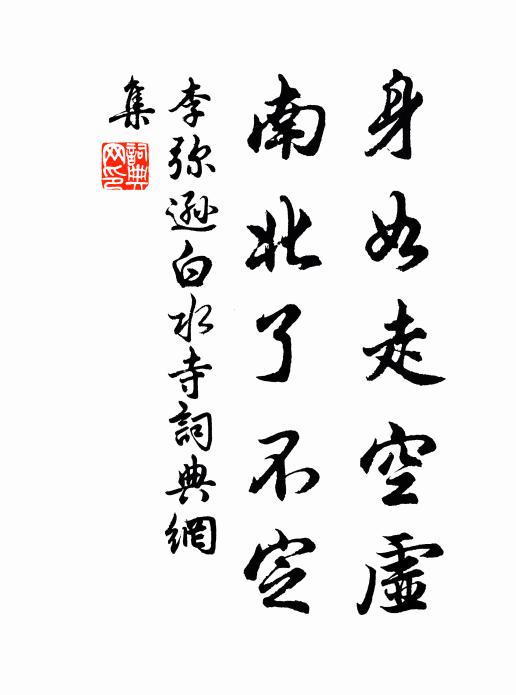 身如走空虛
南北了不定
李弥遜白水寺詞典網
集
詞典
网印